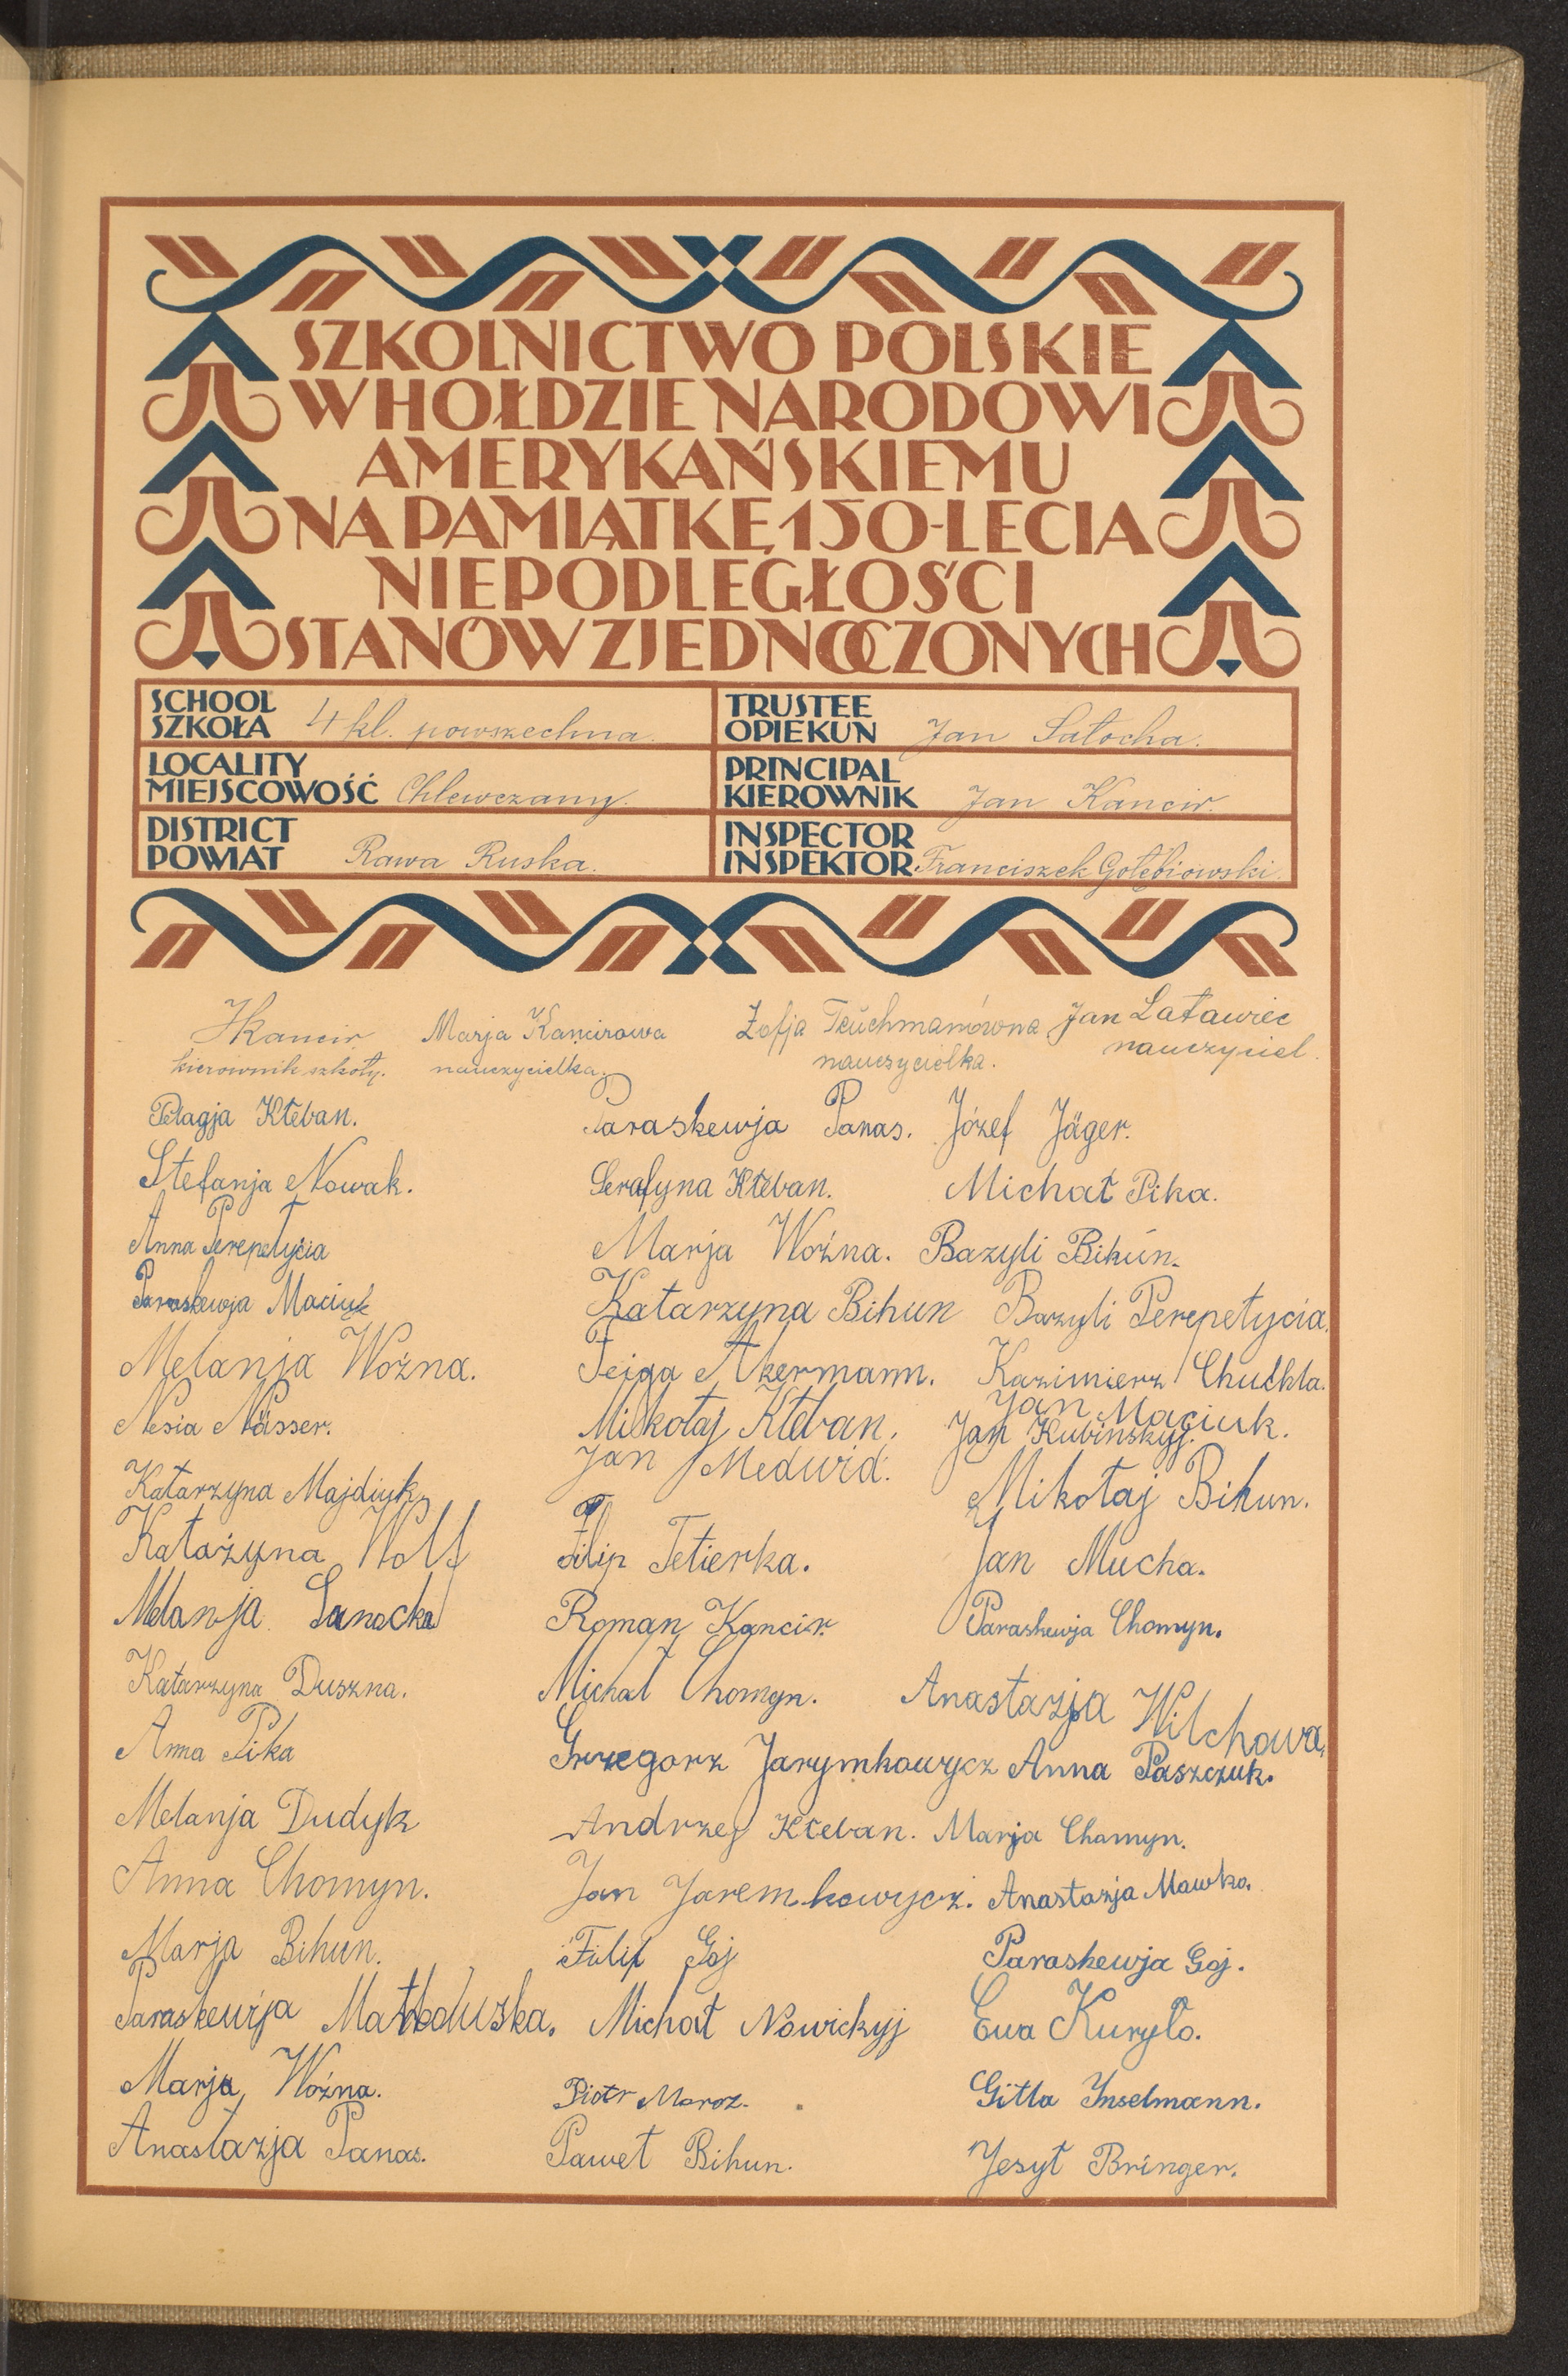 SZKOLNICTWO POLSKIE
W HOŁDZIE NARODOWI
AMERYKAŃSKIEMU
NA PAMIĄTKĘ 150-LECIA
NIEPODLEGŁOŚCI
STANÓW ZJEDNOCZONYCH
SCHOOL
SZKOŁA 4 kl. powszechna.
TRUSTEE
OPIEKUN Jan Satocha.
LOCALITY
MIEJSCOWOŚĆ Chlewczany.
PRINCIPAL
KIEROWNIK Jan Kancir.
DISTRICT
POWIAT Rawa Ruska.
INSPECTOR
INSPEKTOR Franciszek Gołębiowski.
JKancir
kierownik szkoły.
Marja Kancirowa
nauczycielka.
Zofja Teuchmanówna
nauczycielka.
Jan Latawiec
nauczyciel.
Pelagja Kłeban.
Stefanja Nowak.
Anna Perepetycia
Paraskewja Maciuk
Melanja Woźna.
Nesia Nässer.
Katarzyna Majdiuk.
Katażyna Wolf
Melanja Sanecka
Katarzyna Duszna.
Anna Pika
Melanja Dudyk
Anna Chomyn.
Marja Bihun.
Paraskewja Matłoduska.
Marja Woźna.
Anastazja Panas.
Paraskewja Panas.
Serafyna Kłeban.
Marja Woźna.
Katarzyna Bihun
Feiga Akermann.
Mikołaj Kłeban.
Jan Medwid.
Filip Tetierka.
Roman Kancir.
Michał Chomyn.
Grzegorz Jarymkowycz
Andrzej Kłeban.
Jan Jaremkowycz.
Filip Goj
Michał Nowickyj
Piotr Moroz.
Paweł Bihun.
Józef Jäger.
Michał Pika.
Bazyli Bihun.
Bazyli Perepetycia.
Kazimierz Chuchla.
Jan Maciuk.
Jan Kubinskyj.
Mikołaj Bihun.
Jan Mucha.
Paraskewja Chomyn.
Anastazja Wilchowa.
Anna Paszczuk.
Marja Chomyn.
Anastazja Mawka.
Paraskewja Goj.
Ewa Kuryło.
Gitla Inselmann.
Jesyt Bringer.